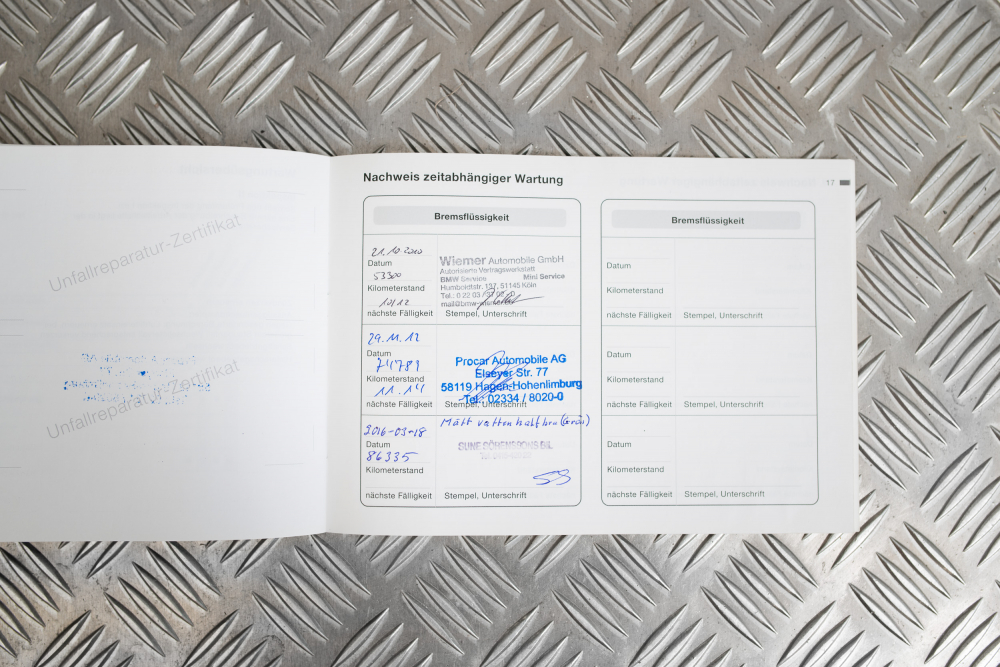 Unfallreparatur-Zertifikat
Unfallreparatur-Zertifikat
Nachweis zeitabhängiger Wartung
17
Bremsflüssigkeit
21.10.2010
Datum
53300
Kilometerstand
10/12
nächste Fälligkeit
Wiemer Automobile GmbH
Autorisierte Vertragswerkstatt
BMW Service Mini Service
Humboldtstr. 137, 51145 Köln
Stempel, Unterschrift
29.11.12
Datum
74789
Kilometerstand
11.14
nächste Fälligkeit
Procar Automobile AG
Elseyer Str. 77
58119 Hagen-Hohenlimburg
Tel.: 02334 / 8020-0
Stempel, Unterschrift
2016-03-18
Datum
86335
Kilometerstand
nächste Fälligkeit
Mätt vattenhalt
SUNE SÖRENSSONS BIL
Stempel, Unterschrift
Bremsflüssigkeit
Datum
Kilometerstand
nächste Fälligkeit
Stempel, Unterschrift
Datum
Kilometerstand
nächste Fälligkeit
Stempel, Unterschrift
Datum
Kilometerstand
nächste Fälligkeit
Stempel, Unterschrift